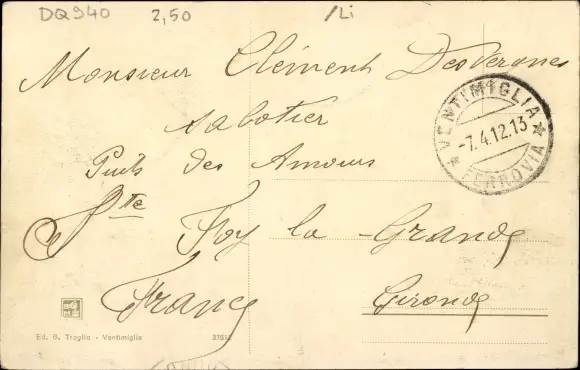 DQ940 2,50 /Li
Monsieur Clément Desvergnes
VENTIMIGLIA
-7.4.12.13
FERROVIA
sabotier
Puits des Amours
Ste Foy la Grande
France Gironde
Ed. G. Troglio - Ventimiglia